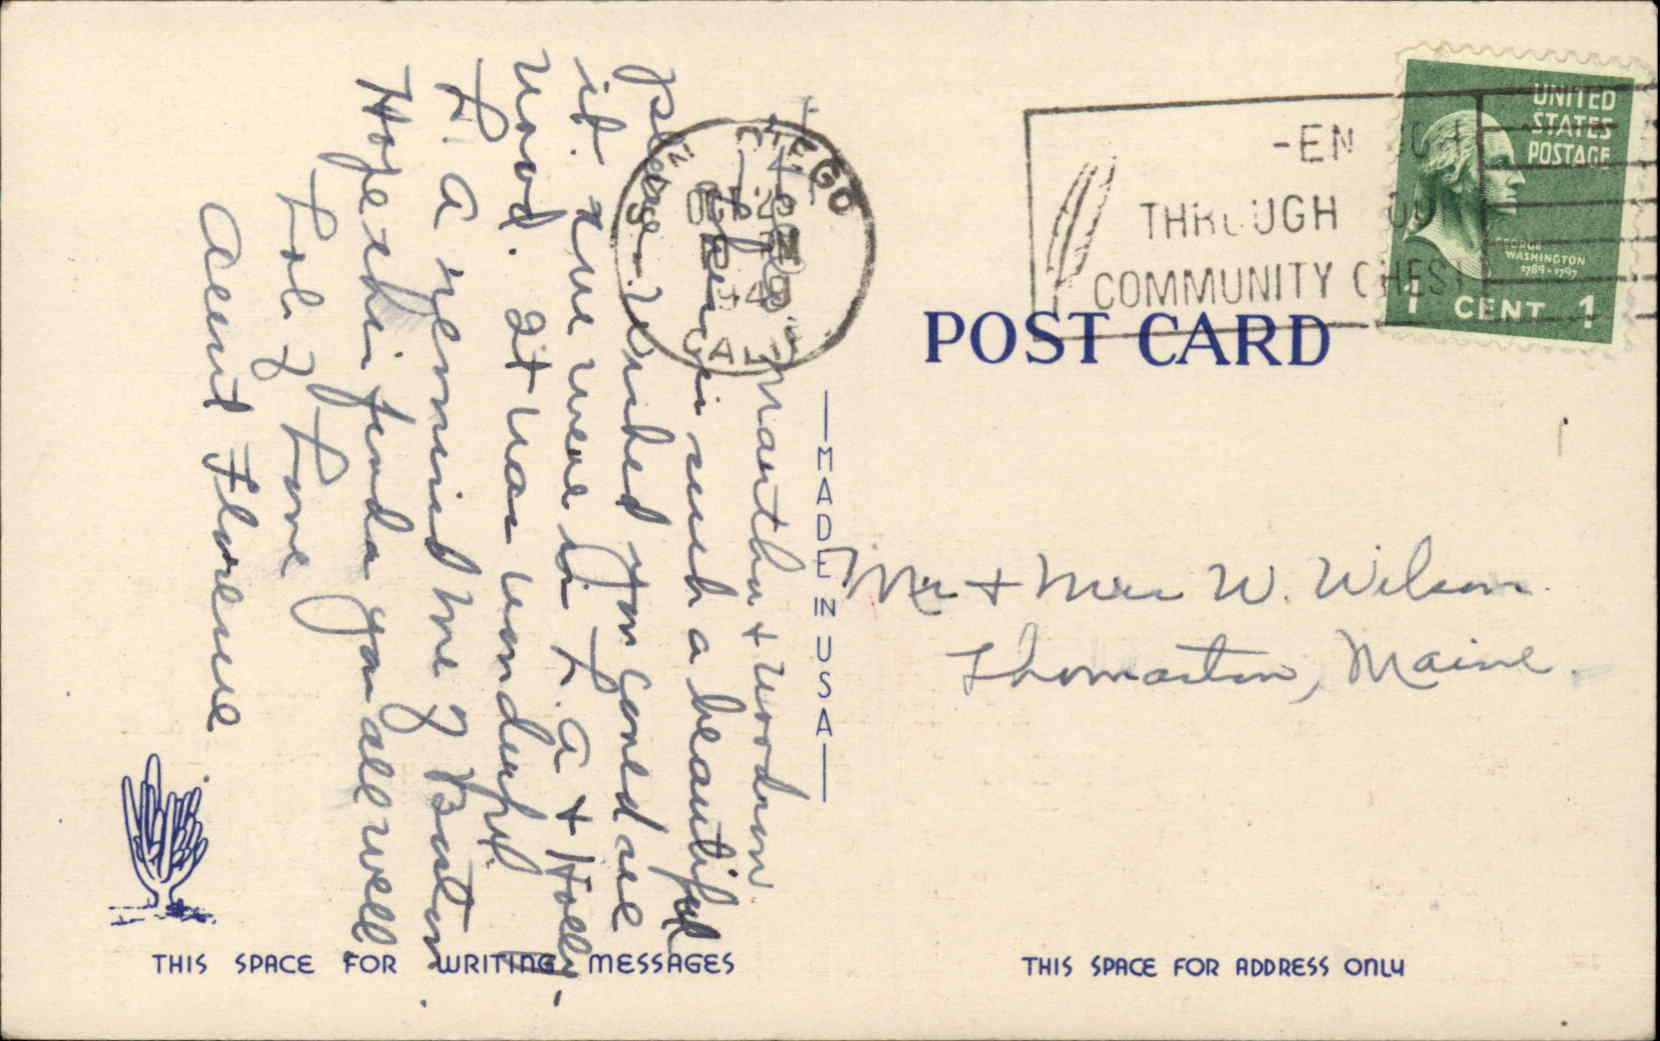 Martha & Woodrow.
such a beautiful
place. Wished you could see
it. We were in L.A & Holly-
wood. It was wonderful.
L.A remind me of Boston.
Hope this finds you all well
Lots of Love
Aunt Florence
THIS SPACE FOR WRITING MESSAGES
MADE IN USA
SAN DIEGO
CALIF
THROUGH
COMMUNITY CHEST
UNITED
STATES
POSTAGE
GEORGE
WASHINGTON
1789-1797
1 CENT 1
POST CARD
Mr + Mrs W. Wilson.
Thomaston, Maine.
THIS SPACE FOR ADDRESS ONLY